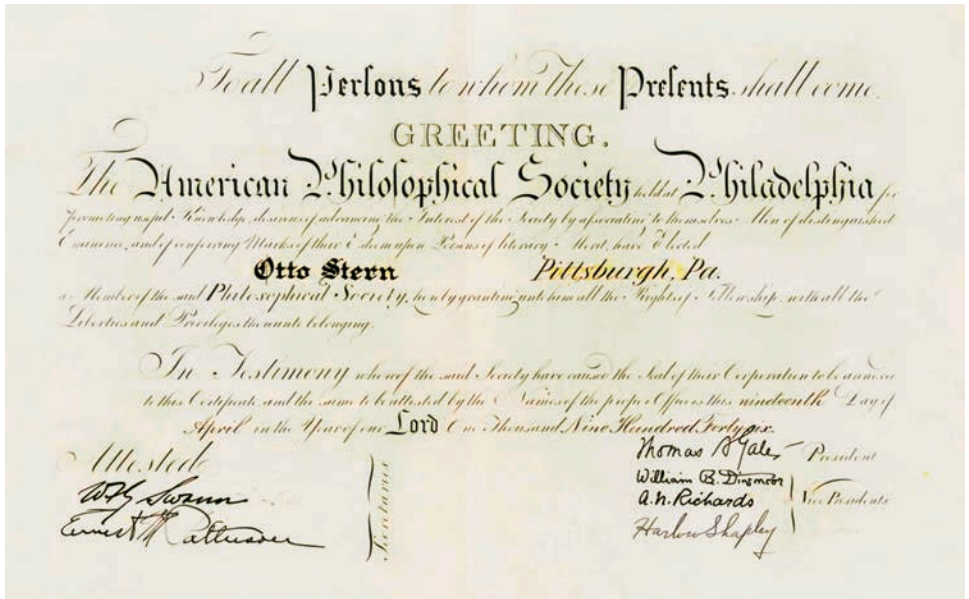 To all Persons to whom these Presents shall come.
GREETING.
The American Philosophical Society held at Philadelphia for
promoting useful Knowledge, desirous of advancing the Interest of the Society by associating to themselves Men of distinguished
Eminence, and of conferring Marks of their Esteem upon Persons of literary Merit, have Elected
Otto Stern Pittsburgh, Pa.
a Member of the said Philosophical Society, hereby granting unto him all the Rights of Fellowship, with all the
Liberties and Privileges thereunto belonging.
In Testimony whereof the said Society have caused the Seal of their Corporation to be annexed
to this Certificate, and the same to be attested by the Names of the proper Officers this nineteenth Day of
April in the Year of our Lord One Thousand Nine Hundred Forty six.
Attested
Secretaries
W F G Swann
Ernest M Patterson
Thomas S Gates President
William B. Dinsmoor
A. N. Richards Vice Presidents
Harlow Shapley